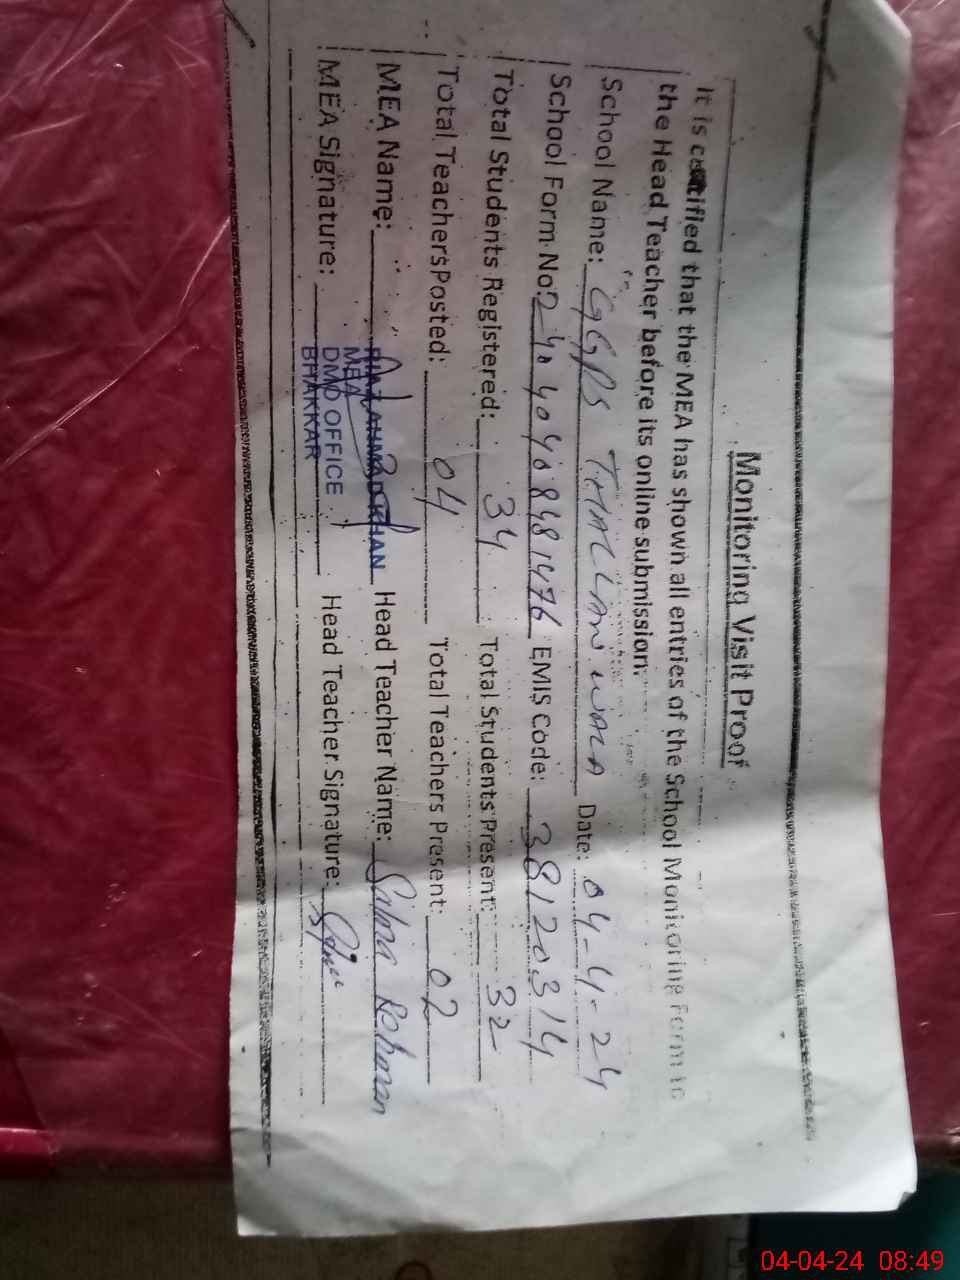 Monitoring Visit Proof
It is certified that the MEA has shown all entries of the School Monitoring Form to
the Head Teacher before its online submission.
School Name: GGPS THALLAN WALA Date: 04-4-24
School Form No: EMIS Code: 38120314
Total Students Registered: 34 Total Students Present: 32
Total Teachers Posted: 04 Total Teachers Present: 02
MEA Name: RIAZ AHMAD KHAN Head Teacher Name: Salma Rehman
MEA
MEA Signature: DMO OFFICE Head Teacher Signature:
BHAKKAR
04-04-24 08:49